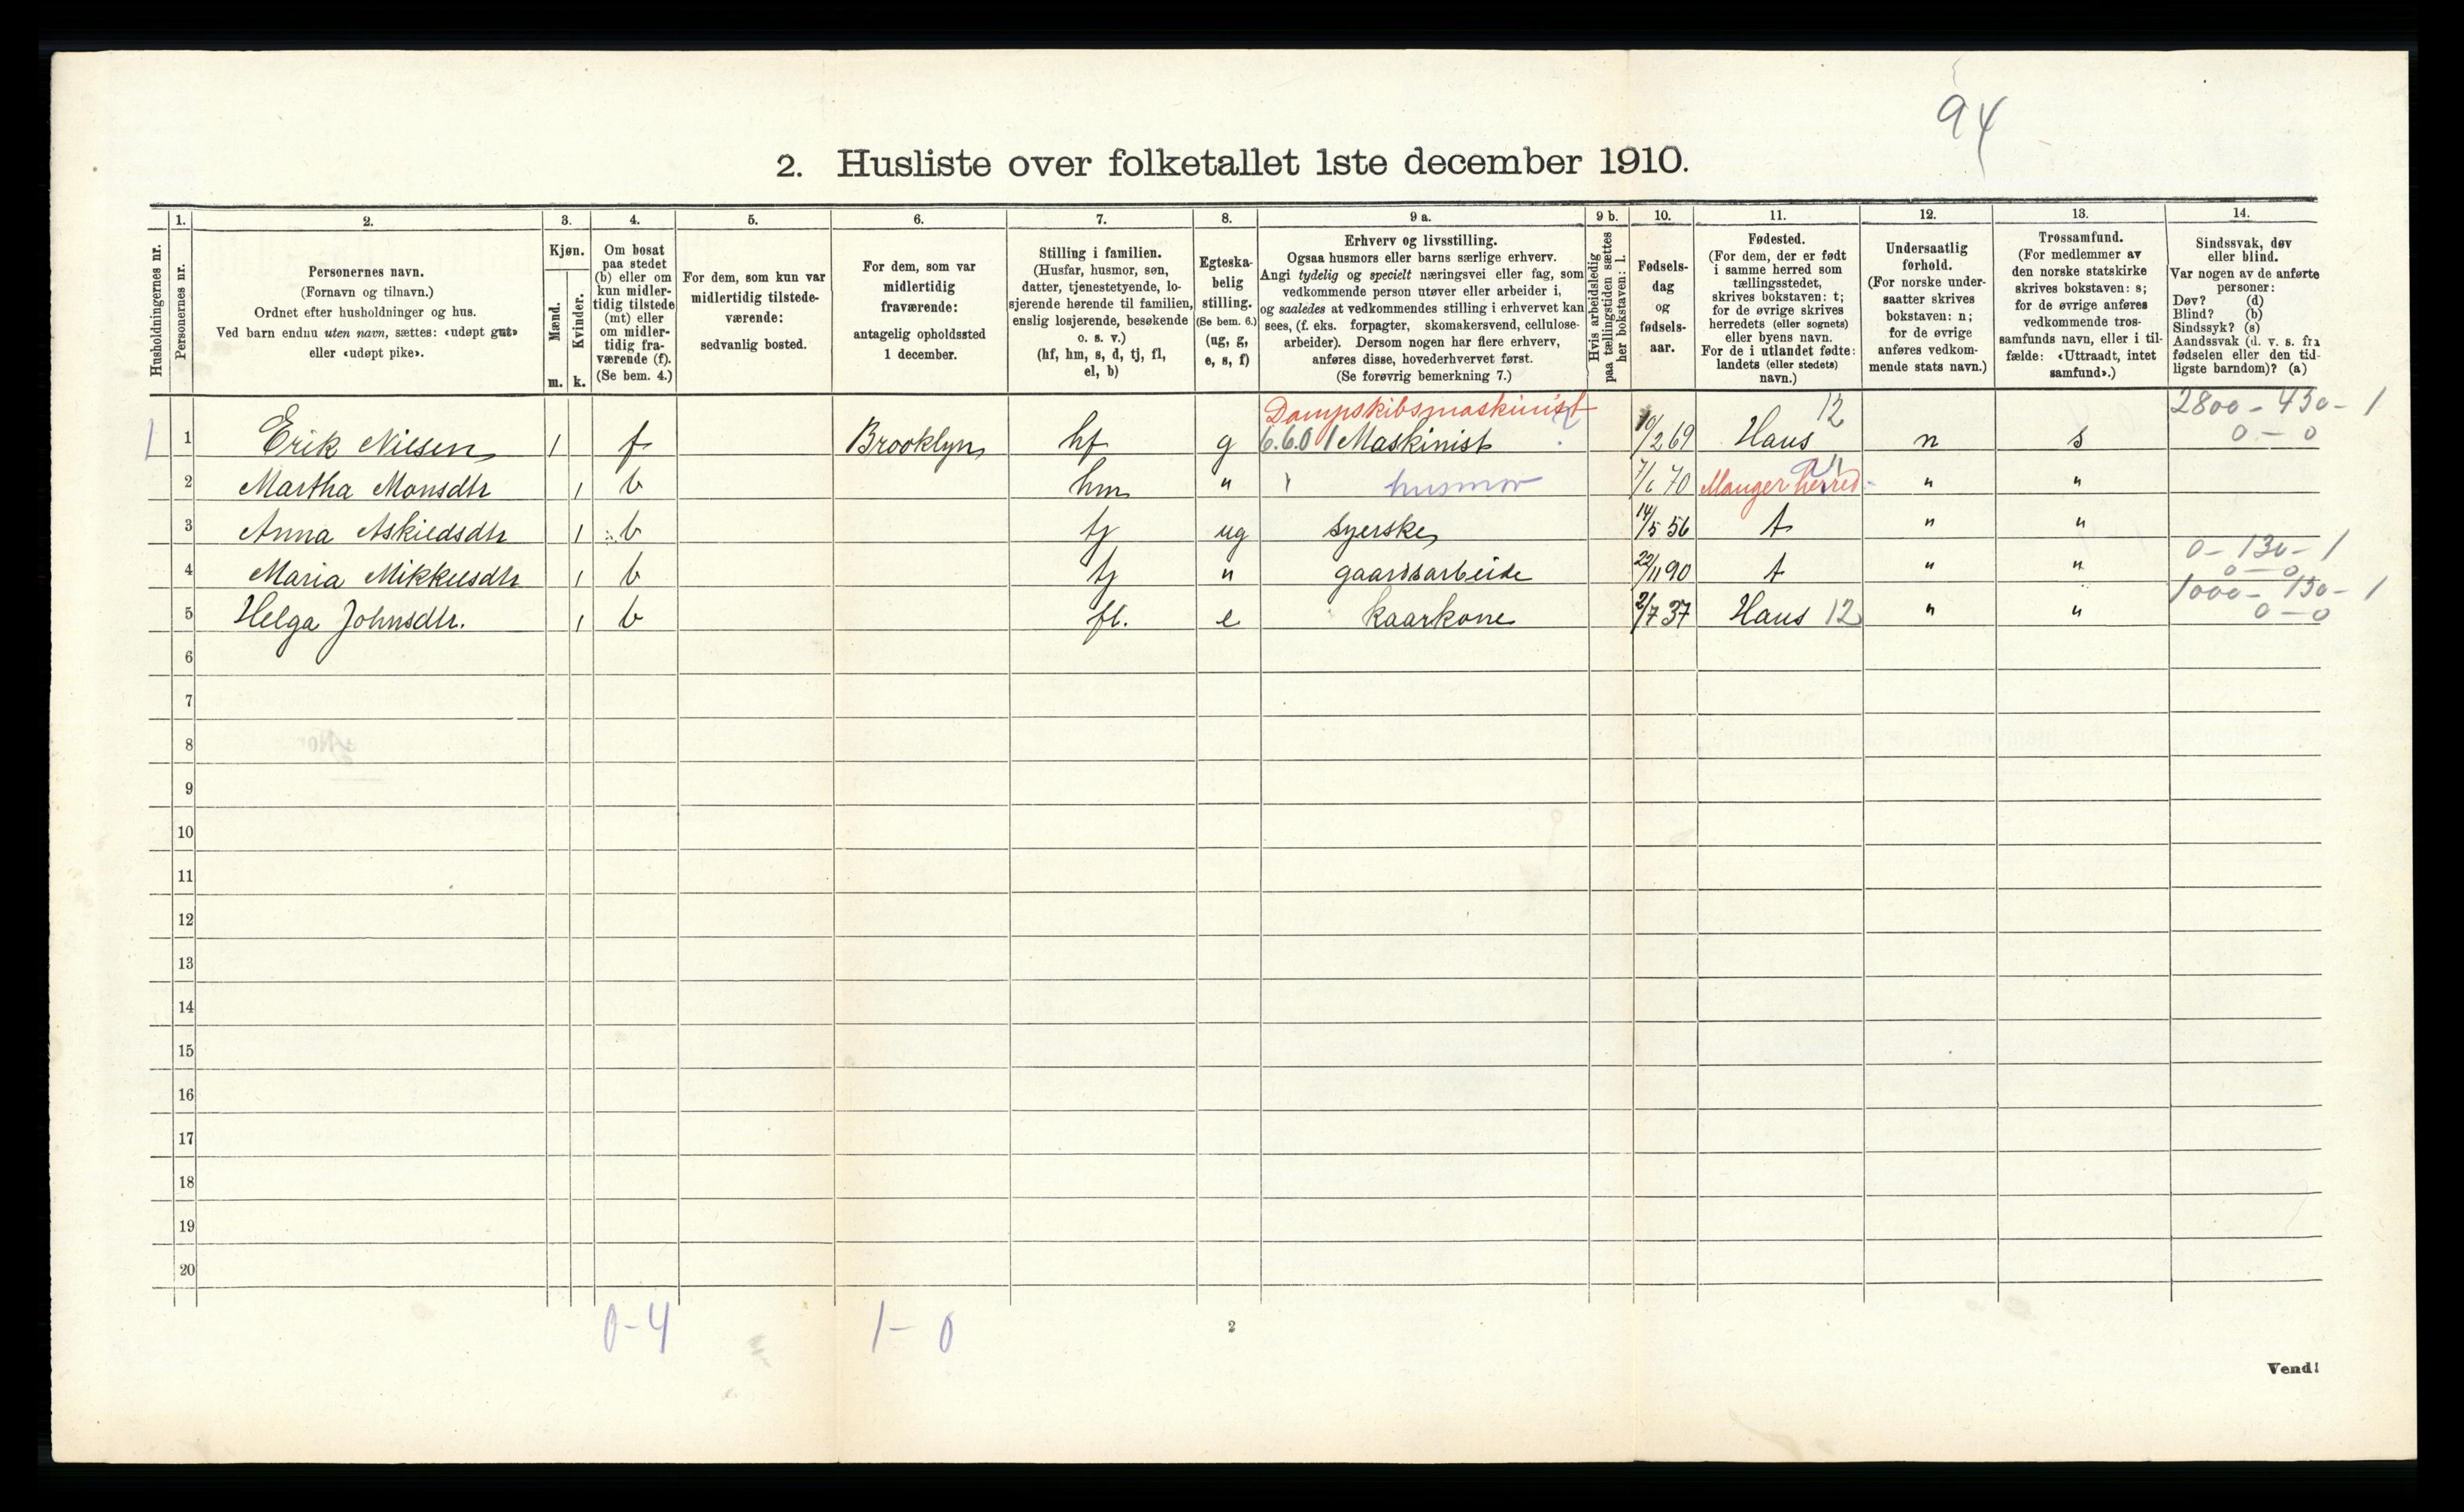 94
2. Husliste over folketallet 1ste december 1910.
Husholdningernes nr.
1.
Personernes nr.
2.
Personernes navn.
(Fornavn og tilnavn.)
Ordnet efter husholdninger og hus.
Ved barn endnu uten navn, sættes: «udøpt gut»
eller «udøpt pike».
3.
Kjøn.
Mænd.
Kvinder.
m.
k.
4.
Om bosat
paa stedet
(b) eller om
kun midler-
tidig tilstede
(mt) eller
om midler-
tidig fra-
værende (f).
(Se bem. 4.)
5.
For dem, som kun var
midlertidig tilstede-
værende:
sedvanlig bosted.
6.
For dem, som var
midlertidig
fraværende:
antagelig opholdssted
1 december.
7.
Stilling i familien.
(Husfar, husmor, søn,
datter, tjenestetyende, lo-
sjerende hørende til familien,
enslig losjerende, besøkende
o. s. v.)
(hf, hm, s, d, tj, fl,
el, b)
8.
Egteska-
belig
stilling.
(Se bem. 6.)
(ug, g,
e, s, f)
9 a.
Erhverv og livsstilling.
Ogsaa husmors eller barns særlige erhverv.
Angi tydelig og specielt næringsvei eller fag, som
vedkommende person utøver eller arbeider i,
og saaledes at vedkommendes stilling i erhvervet kan
sees, (f. eks. forpagter, skomakersvend, cellulose-
arbeider). Dersom nogen har flere erhverv,
anføres disse, hovederhvervet først.
(Se forøvrig bemerkning 7.)
9 b.
Hvis arbeidsledig
paa tællingstiden sættes
her bokstaven: l.
10.
Fødsels-
dag
og
fødsels-
aar.
11.
Fødested.
(For dem, der er født
i samme herred som
tællingsstedet,
skrives bokstaven: t;
for de øvrige skrives
herredets (eller sognets)
eller byens navn.
For de i utlandet fødte:
landets (eller stedets)
navn.)
12.
Undersaatlig
forhold.
(For norske under-
saatter skrives
bokstaven: n;
for de øvrige
anføres vedkom-
mende stats navn.)
13.
Trossamfund.
(For medlemmer av
den norske statskirke
skrives bokstaven: s;
for de øvrige anføres
vedkommende tros-
samfunds navn, eller i til-
fælde: «Uttraadt, intet
samfund».)
14.
Sindssvak, døv
eller blind.
Var nogen av de anførte
personer:
Døv? (d)
Blind? (b)
Sindssyk? (s)
Aandssvak (d. v. s. fra
fødselen eller den tid-
ligste barndom)? (a)
Dampskibsmaskinist 12 2800 - 430 - 1
1 1 Erik Nilsen 1 f Brooklyn hf g 6.6.01 Maskinist 10/2 69 Haus n s 0 - 0
2 Martha Monsdtr 1 b hm " husmor 7/6 70 Manger herred " "
3 Anna Askildsdtr 1 b tj ug syerske 14/5 56 t " "
0 - 130 - 1
4 Maria Mikkelsdtr 1 b tj " gaardsarbeide 22/11 90 t " " 0 - 0
1000 - 150 - 1
5 Helga Johnsdtr. 1 b fl. e kaarkone 2/7 37 Haus 12 " " 0 - 0
6
7
8
9
10
11
12
13
14
15
16
17
18
19
20
0-4 1-0
2
Vend!